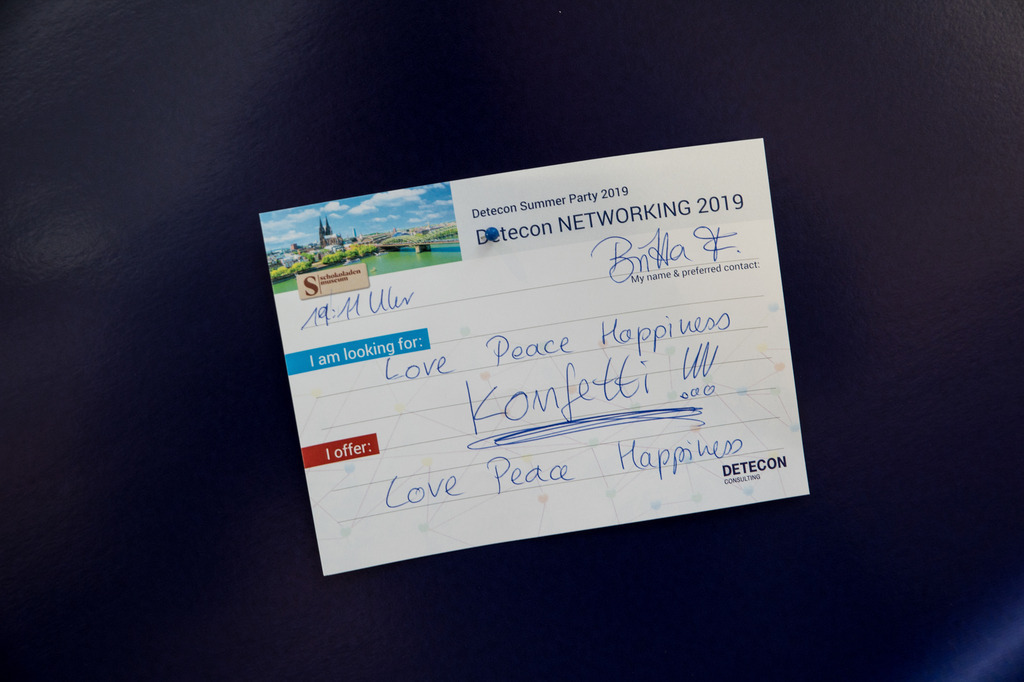 Detecon Summer Party 2019
Detecon NETWORKING 2019
Britta F.
My name & preferred contact:
S schokoladen
museum
19:11 Uhr
I am looking for:
Love Peace Happiness
Konfetti !!!
I offer:
Love Peace Happiness
DETECON
CONSULTING